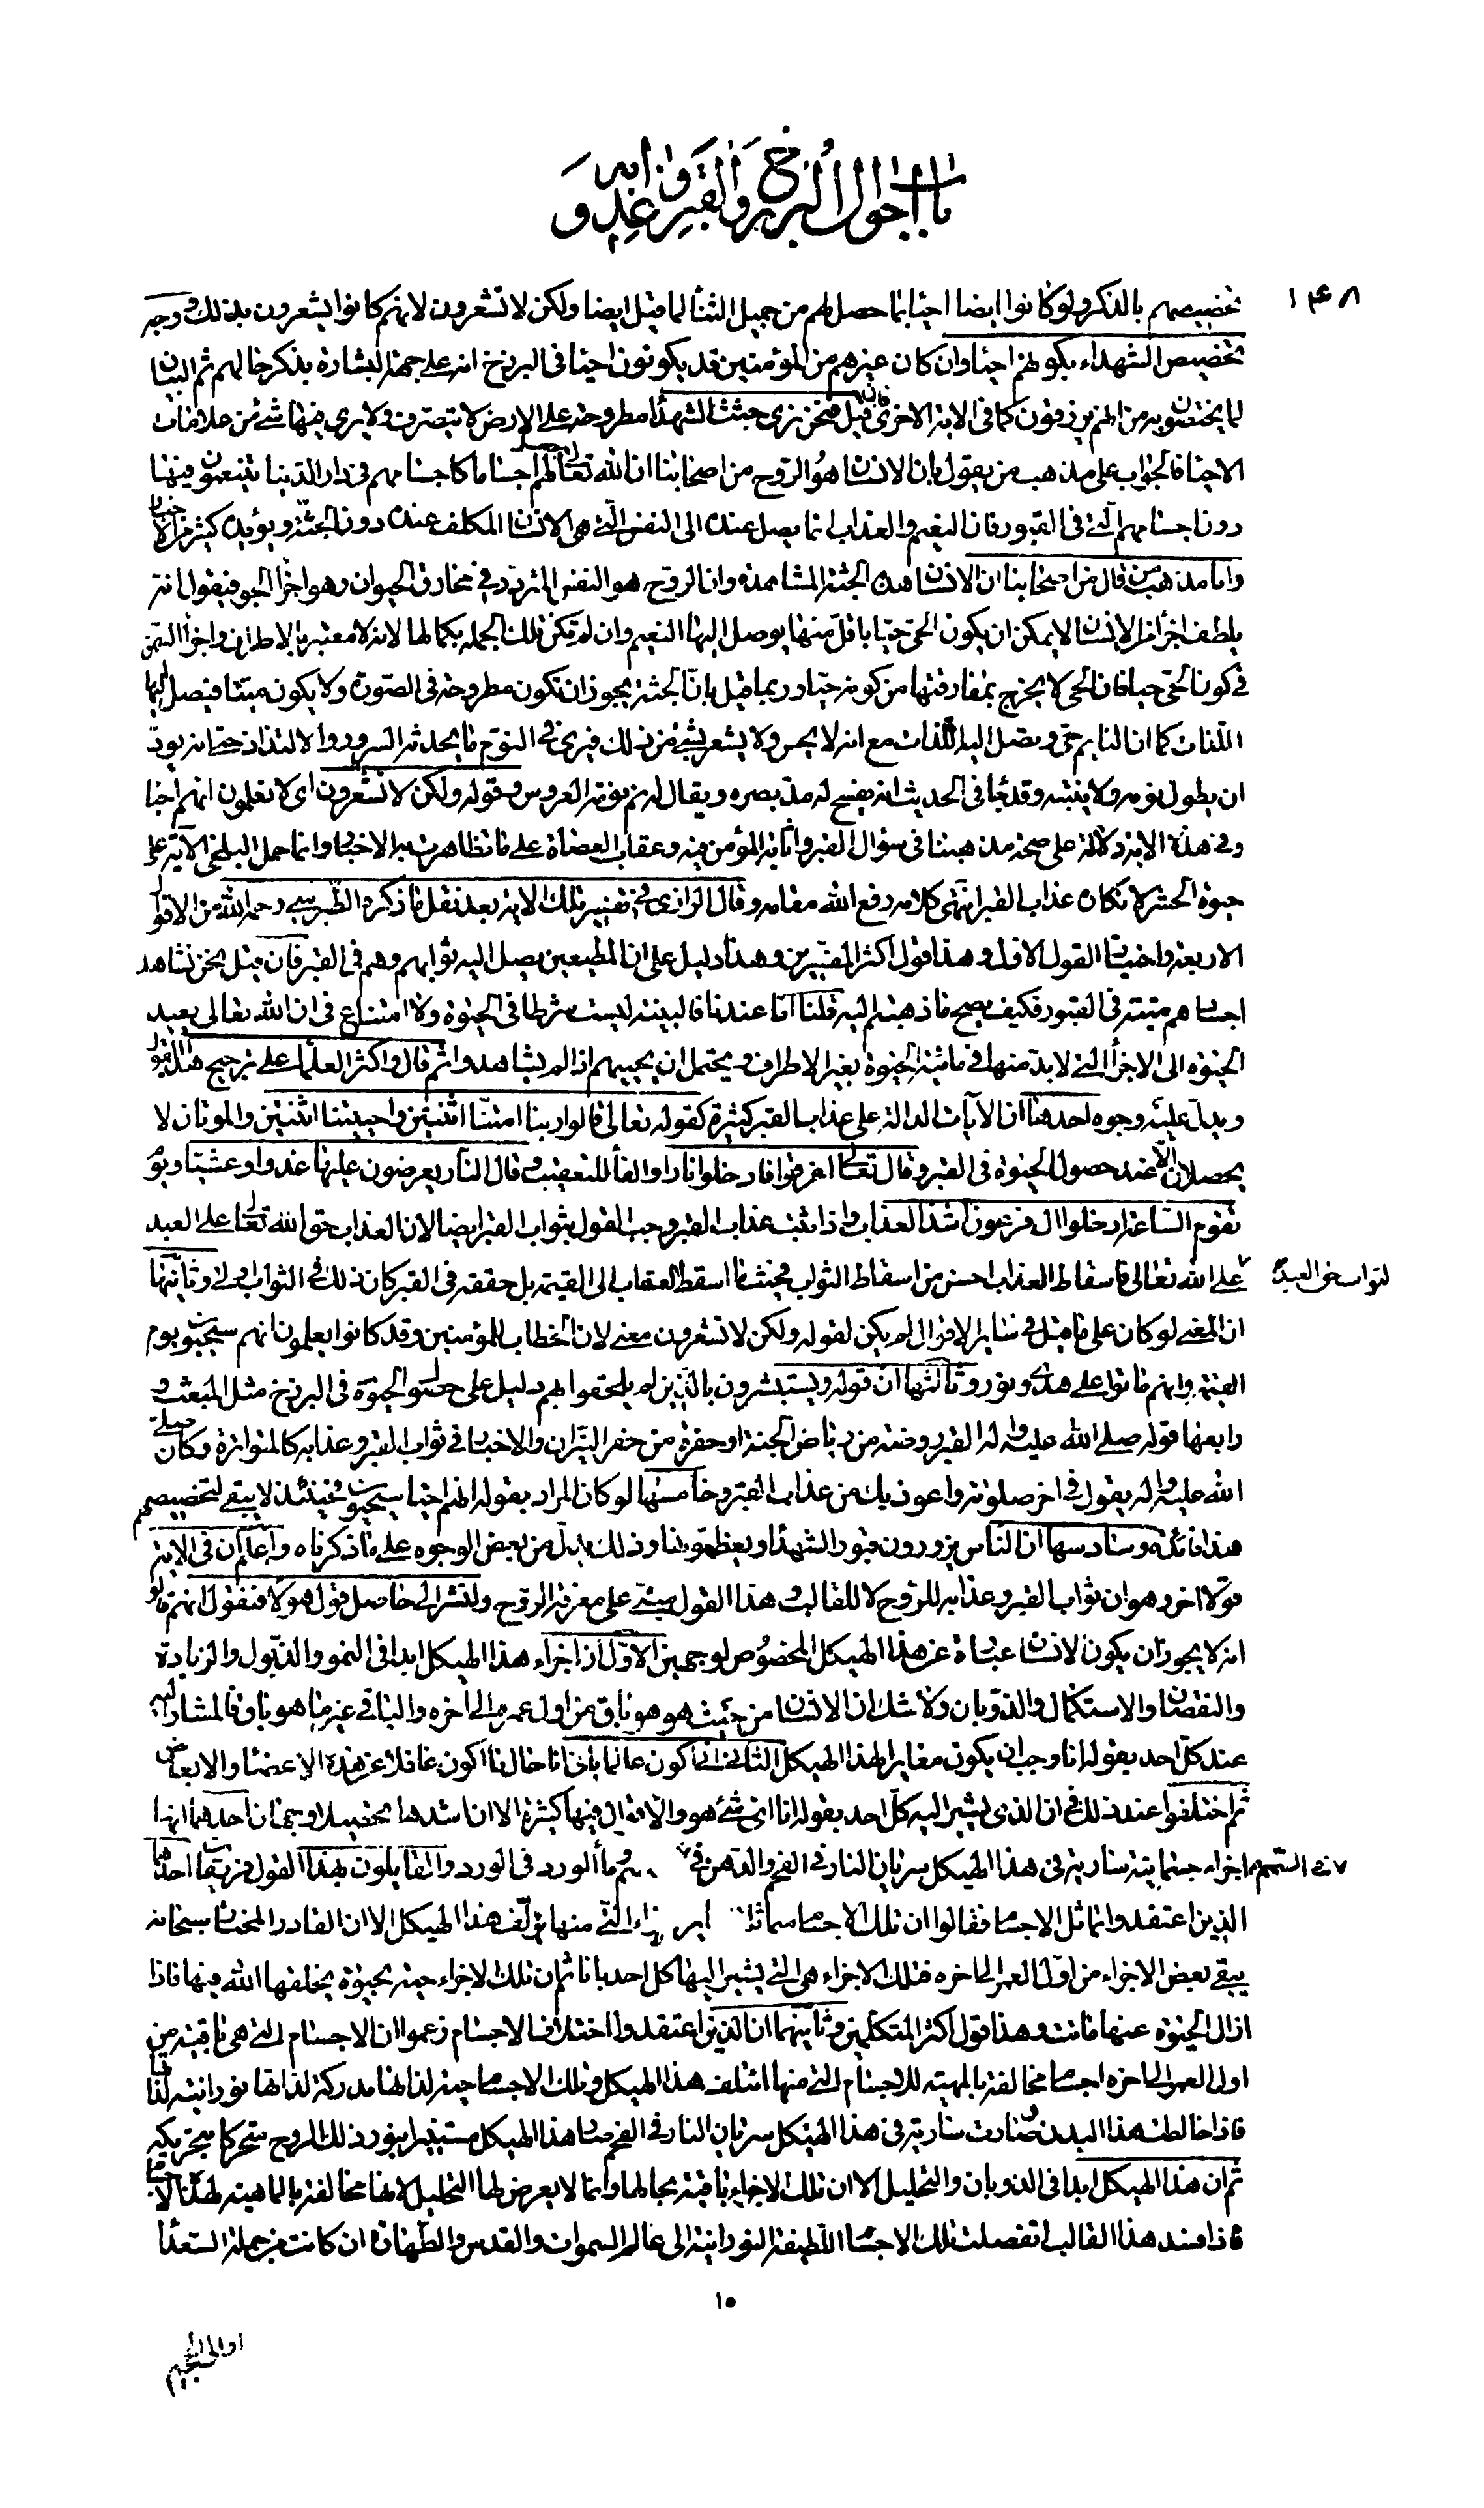 باب احوال البرزخ والقبر وعذابه و
١۴٨
تخصيصهم بالذكر ولو كانوا ايضا احياء بما حصل لهم من جميل الثناء لما قيل ايضا ولكن لا تشعرون لانهم كانوا يشعرون بذلك ووجه
تخصيص الشهداء بكونهم احياء وان كان غيرهم من المؤمنين قد يكونون احياء فى البرزخ انه على جهة البشارة بذكر حالهم ثم البيان
لما يختصون به من انهم يرزقون كما فى الاية الاخرى فان قيل فنحن نرى جثث الشهداء مطروحة على الارض لا تتصرف ولا يرى فيها شئ من علامات
الاحياء فالجواب على مذهب من يقول بان الانسان هو الروح من اصحابنا ان الله تعالى جعل لهم اجساما كاجسامهم فى دار الدنيا يتنعمون فيها
دون اجسامهم التى فى القبور فان النعيم والعذاب انما يصل عنده الى النفس التى هى الانسان المكلف عنده دون الجثة ويؤيده كثير من الاخبار
واما مذهب من قال من اصحابنا ان الانسان هذه الجثة المشاهدة وان الروح هو النفس المتردد فى مخارق الحيوان وهو اجزاء الجو فيقول انه
يلطف اجزاء من الانسان لا يمكن ان يكون الحى حيا باقل منها يوصل اليها النعيم وان لم تكن تلك الجملة بكمالها لانه لا معتبر بالاطراف واجزاء السمن
فى كون الحى حيا فان الحى لا يخرج بمفارقتها من كونه حيا وربما قيل بان الجثة يجوز ان تكون مطروحة فى الصورة ولا يكون ميتا فيصل اليها
اللذات كما ان النايم حى وتصل اليه اللذات مع انه لا يحس ولا يشعر بشئ من ذلك فيرى فى النوم ما يحدث السرور والالتذاذ حتى انه يود
ان يطول نومه ولا ينتبه وقد جاء فى الحديث انه يفسح له مد بصره ويقال له نم نومة العروس وقوله ولكن لا تشعرون اى لا تعلمون انهم احياء
وفى هذه الاية دلالة على صحة مذهبنا فى سؤال القبر واثابة المؤمن فيه وعقاب العصاة على ما تظاهرت به الاخبار وانما حمل البلخى الآية على
حيوة الحشر لانكاره عذاب القبر انتهى كلامه رفع الله مقامه وقال الرازى فى تفسير تلك الاية بعد نقل ما ذكره الطبرسى رحمه الله من الاقوال
الاربعة واختيار القول الاول وهذا قول اكثر المفسرين وهذا دليل على ان المطيعين يصل اليه ثوابهم وهم فى القبر فان قيل نحن نشاهد
اجسادهم ميتة فى القبور فكيف يصح ما ذهبتم اليه قلنا اما عندنا فالبنية ليست شرطا فى الحيوة ولا امتناع فى ان الله تعالى يعيد
الحيوة الى الاجزاء التى لا بد منها فى مائية الحيوة بغير الاطراف ويحتمل ان يحييهم اذا لم يشاهدوا ثم قال واكثر العلماء على ترجيح هذا القول
ويدل عليه وجوه احدها ان الآيات الدالة على عذاب القبر كثيرة كقوله تعالى قالوا ربنا امتنا اثنتين واحييتنا اثنتين والموتان لا
يحصلان الا عند حصول الحيوة فى القبر وقال تعالى اغرقوا فادخلوا نارا والفاء للتعقيب وقال النار يعرضون عليها غدوا وعشيا ويوم
تقوم الساعة ادخلوا ال فرعون اشد العذاب واذا ثبت عذاب القبر وجب القول بثواب القبر ايضا لان العذاب حق الله تعالى على العبد
والثواب حق العبد
على الله تعالى فاسقاط العذاب احسن من اسقاط الثواب فحيث ما اسقط العقاب الى القيمة بل حققه فى القبر كان ذلك فى الثواب اولى وثانيها
ان المعنى لو كان على ما قيل فى ساير الاقوال لم يكن لقوله ولكن لا تشعرون معنى لان الخطاب للمؤمنين وقد كانوا يعلمون انهم سيحيون يوم
القيمة وانهم ماتوا على هدى ونور وثالثها ان قوله ويستبشرون بالذين لم يلحقوا بهم دليل على حصول الحيوة فى البرزخ مثل المبعث و
رابعها قوله صلى الله عليه واله القبر روضة من رياض الجنة او حفرة من حفر النيران والاخبار فى ثواب القبر وعذابه كالمتواترة وكان صلى
الله عليه واله يقول فى اخر صلوته واعوذ بك من عذاب القبر وخامسها لو كان المراد بقوله انهم احياء سيحيون فحينئذ لا يبقى لتخصيصهم
هذا فائدة وسادسها ان الناس يزورون قبور الشهداء ويعظمونها وذلك يدل من بعض الوجوه على ما ذكرناه واعلم ان فى الاية
قولا اخر وهو ان ثواب القبر وعذابه للروح لا للقالب وهذا القول مبنى على معرفة الروح ولنشر الى حاصل قول هولاء فنقول انهم قالوا
انه لا يجوز ان يكون الانسان عبارة عن هذا الهيكل المخصوص لوجهين الاول ان اجزاء هذا الهيكل ابدا فى النمو والذبول والزيادة
والنقصان والاستكمال والذوبان ولا شك ان الانسان من حيث هو هو باق من اول عمره الى اخره والباقى غير ما هو باق فالمشار اليه
عند كل احد بقوله انا وجب ان يكون مغايرا لهذا الهيكل الثانى انى اكون عالما بانا حالما اكون غافلا عن هذه الاعضاء والابعاض
ثم اختلفوا عند ذلك فى ان الذى يشير اليه كل احد بقوله انا اى شئ هو والاقوال فيها كثيرة الا ان اشدها تحصيلا وجهان احدهما انها
اجزاء جسمانية سارية فى هذا الهيكل سريان النار فى الفحم والدهن فى
السمسم
وماء الورد فى الورد والقايلون بهذا القول فريقان احدهما
الذين اعتقدوا تماثل الاجسام فقالوا ان تلك الاجسام مماثلة التى منها يؤلف هذا الهيكل الا ان القادر المختار سبحانه
يبقى بعض الاجزاء من اول العمر الى اخره فتلك الاجزاء هى التى يشير اليها كل احد بانا ثم ان تلك الاجزاء حية بحيوة يخلقها الله فيها فاذا
ازال الحيوة عنها ماتت وهذا قول اكثر المتكلمين وثانيهما ان الذين اعتقدوا اختلاف الاجسام زعموا ان الاجسام التى هى باقية من
اول العمر الى اخره اجسام مخالفة بالمهية للاجسام التى منها ائتلف هذا الهيكل وتلك الاجسام حية لذاتها مدركة لذاتها نورانية لذاتها
فاذا خالطت هذا البدن وصارت سارية فى هذا الهيكل سريان النار فى الفحم صار هذا الهيكل مستنيرا بنور ذلك الروح متحركا بتحريكه
ثم ان هذا الهيكل ابدا فى الذوبان والتحليل الا ان تلك الاجزاء باقية بحالها وانما لا يعرض لها التحليل لانها مخالفة بالماهية لهذا الاجسام
فاذا فسد هذا القالب انفصلت تلك الاجسام اللطيفة النورانية الى عالم السموات والقدس والطهارة ان كانت من جملة السعداء
١٠
او الى الجحيم